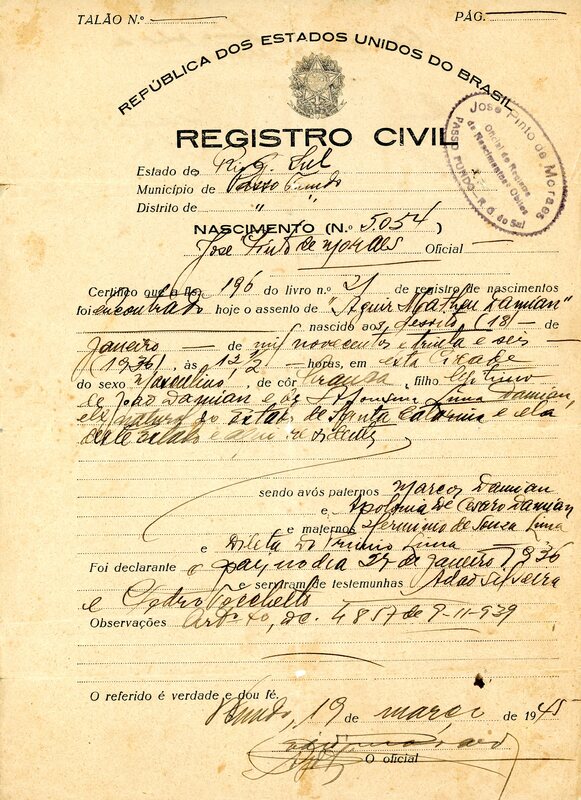 TALÃO N.º
PÁG.
REPÚBLICA DOS ESTADOS UNIDOS DO BRASIL
REGISTRO CIVIL
José Pinto de Moraes
Oficial do Registro
de Nascimentos, Obitos
PASSO FUNDO - R. G. do Sul
Estado de Rio G. Sul
Município de Passo Fundo
Distrito de " "
NASCIMENTO (N.º 5.054)
José Pinto de Moraes Oficial
Certifico que a fls. 196 do livro n.º 21 de registro de nascimentos
foi encontrado hoje o assento de "Damian"
nascido aos desoito (18) de
Janeiro de mil novecentos e trinta e seis
(1936), às 12½ horas, em esta cidade
do sexo Masculino, de côr branca, filho legitimo
de João Damian e de Lima Damian,
ele natural do estado de Santa Catarina e ela
deste estado e
sendo avós paternos Marcos Damian
e Apolonia de Cesaro Damian
e maternos de Souza Lima
e Lima
Foi declarante o pai no dia 27 de Janeiro 1936
e serviram de testemunhas Adão Silveira
e Pedro
Observações Art.º 40, dc. 4857 de 9-11-939
O referido é verdade e dou fé.
Fundo, 19 de março de 1945
O oficial